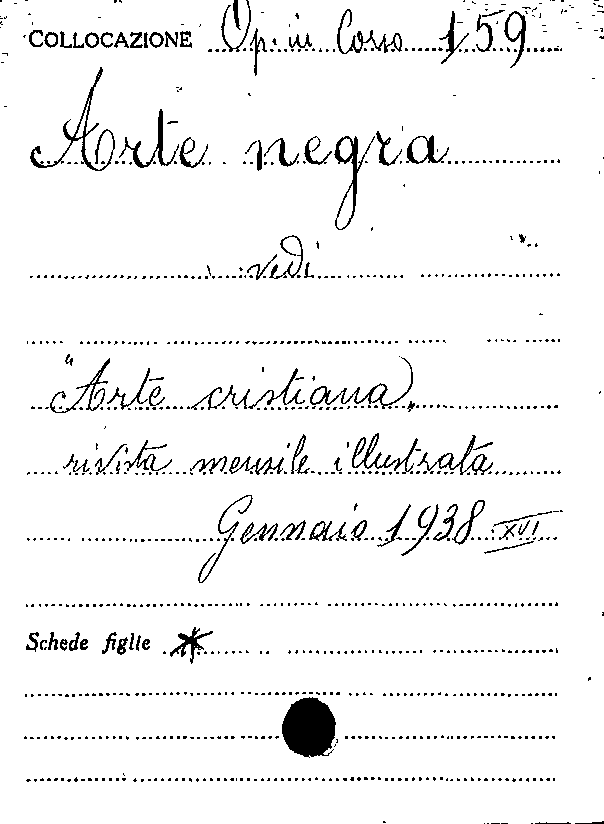 COLLOCAZIONE Op. in Corso 159
Arte negra
vedi
"Arte cristiana„
rivista mensile illustrata
Gennaio 1938 XVI
Schede figlie *